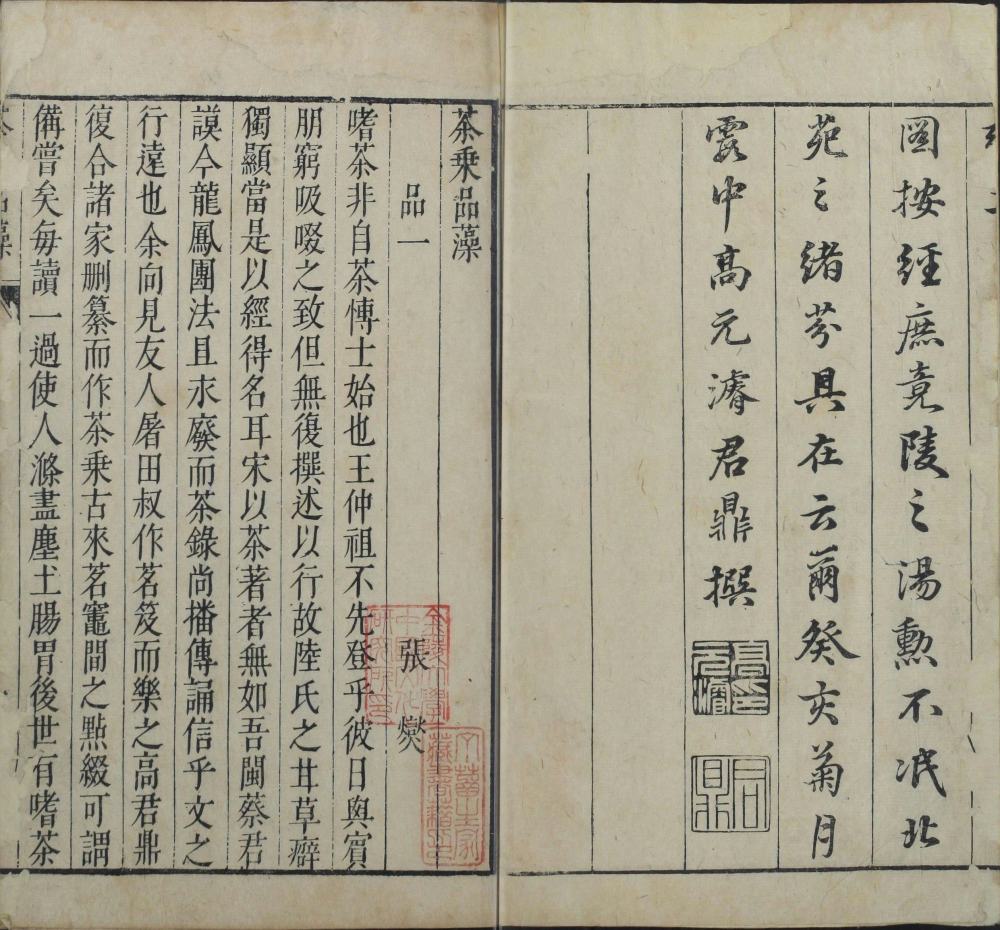 圖按經庶竟陵之湯勳不泯北
苑之緒芬具在云爾癸亥菊月
霞中高元濬君鼎撰
高元濬印
君鼎
茶乗品藻
品一
張燮
嗜茶非自茶愽士始也王仲祖不先登乎彼日與賔
朋窮吸啜之致但無復撰述以行故陸氏之甘草癖
獨顯當是以經得名耳宋以茶著者無如吾閩蔡君
謨今龍鳳團法且永廢而茶錄尚播傳誦信乎文之
行遠也余向見友人屠田叔作茗笈而樂之高君鼎
復合諸家刪纂而作茶乗古來茗竈間之點綴可謂
備嘗矣每讀一過使人滌盡塵土腸胃後世有嗜茶
金陵大學中國文化研究所